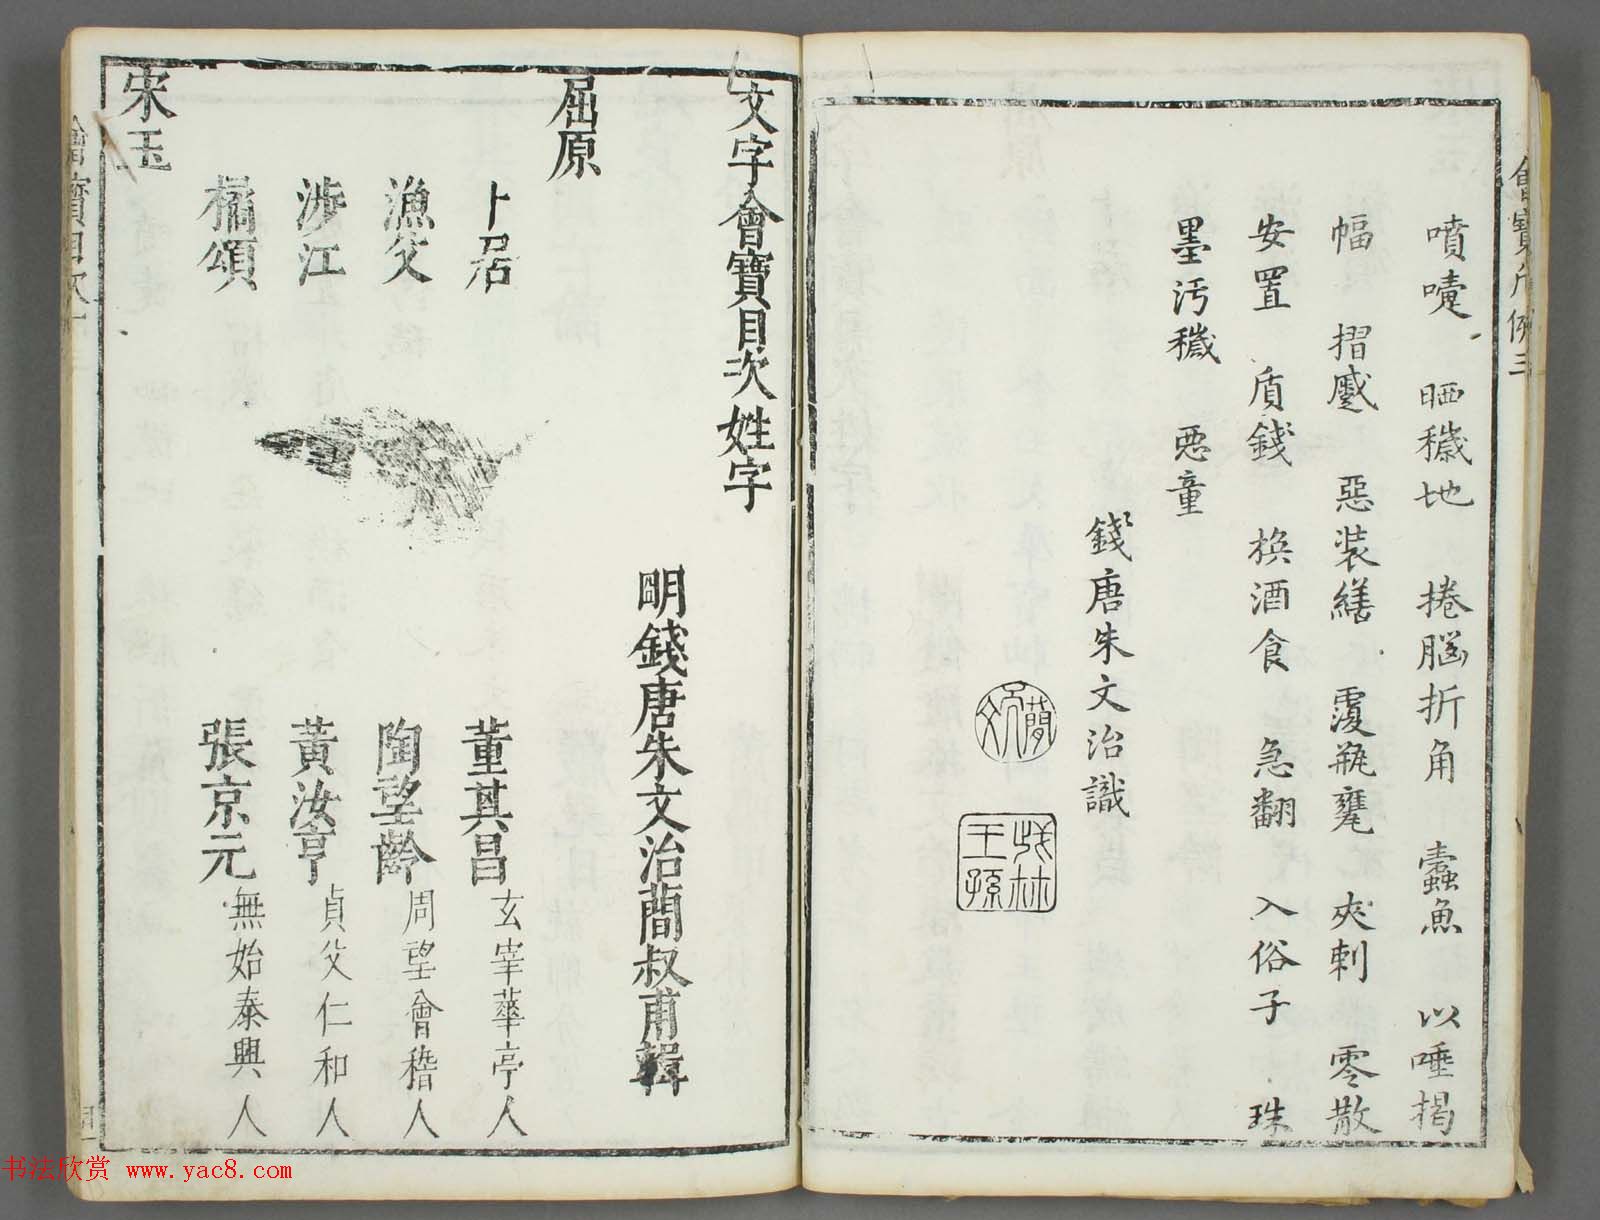 噴嚏　晒穢地　捲腦折角　蠹魚　以唾揭
幅　摺蹙　惡装繕　覆瓶甕　夾刺　零散
安置　质錢　換酒食　急翻　入俗子　珠
墨汚穢　惡童
錢唐朱文治識
簡
王孫
文字會寶目次姓字
明錢唐朱文治蕳叔甫輯
屈原
卜居　董其昌　玄宰華亭人
漁父　陶望齡　周望會稽人
涉江　黃汝亨　貞父仁和人
橘頌　張京元　無始泰興人
宋玉
書法欣赏 www.yac8.com